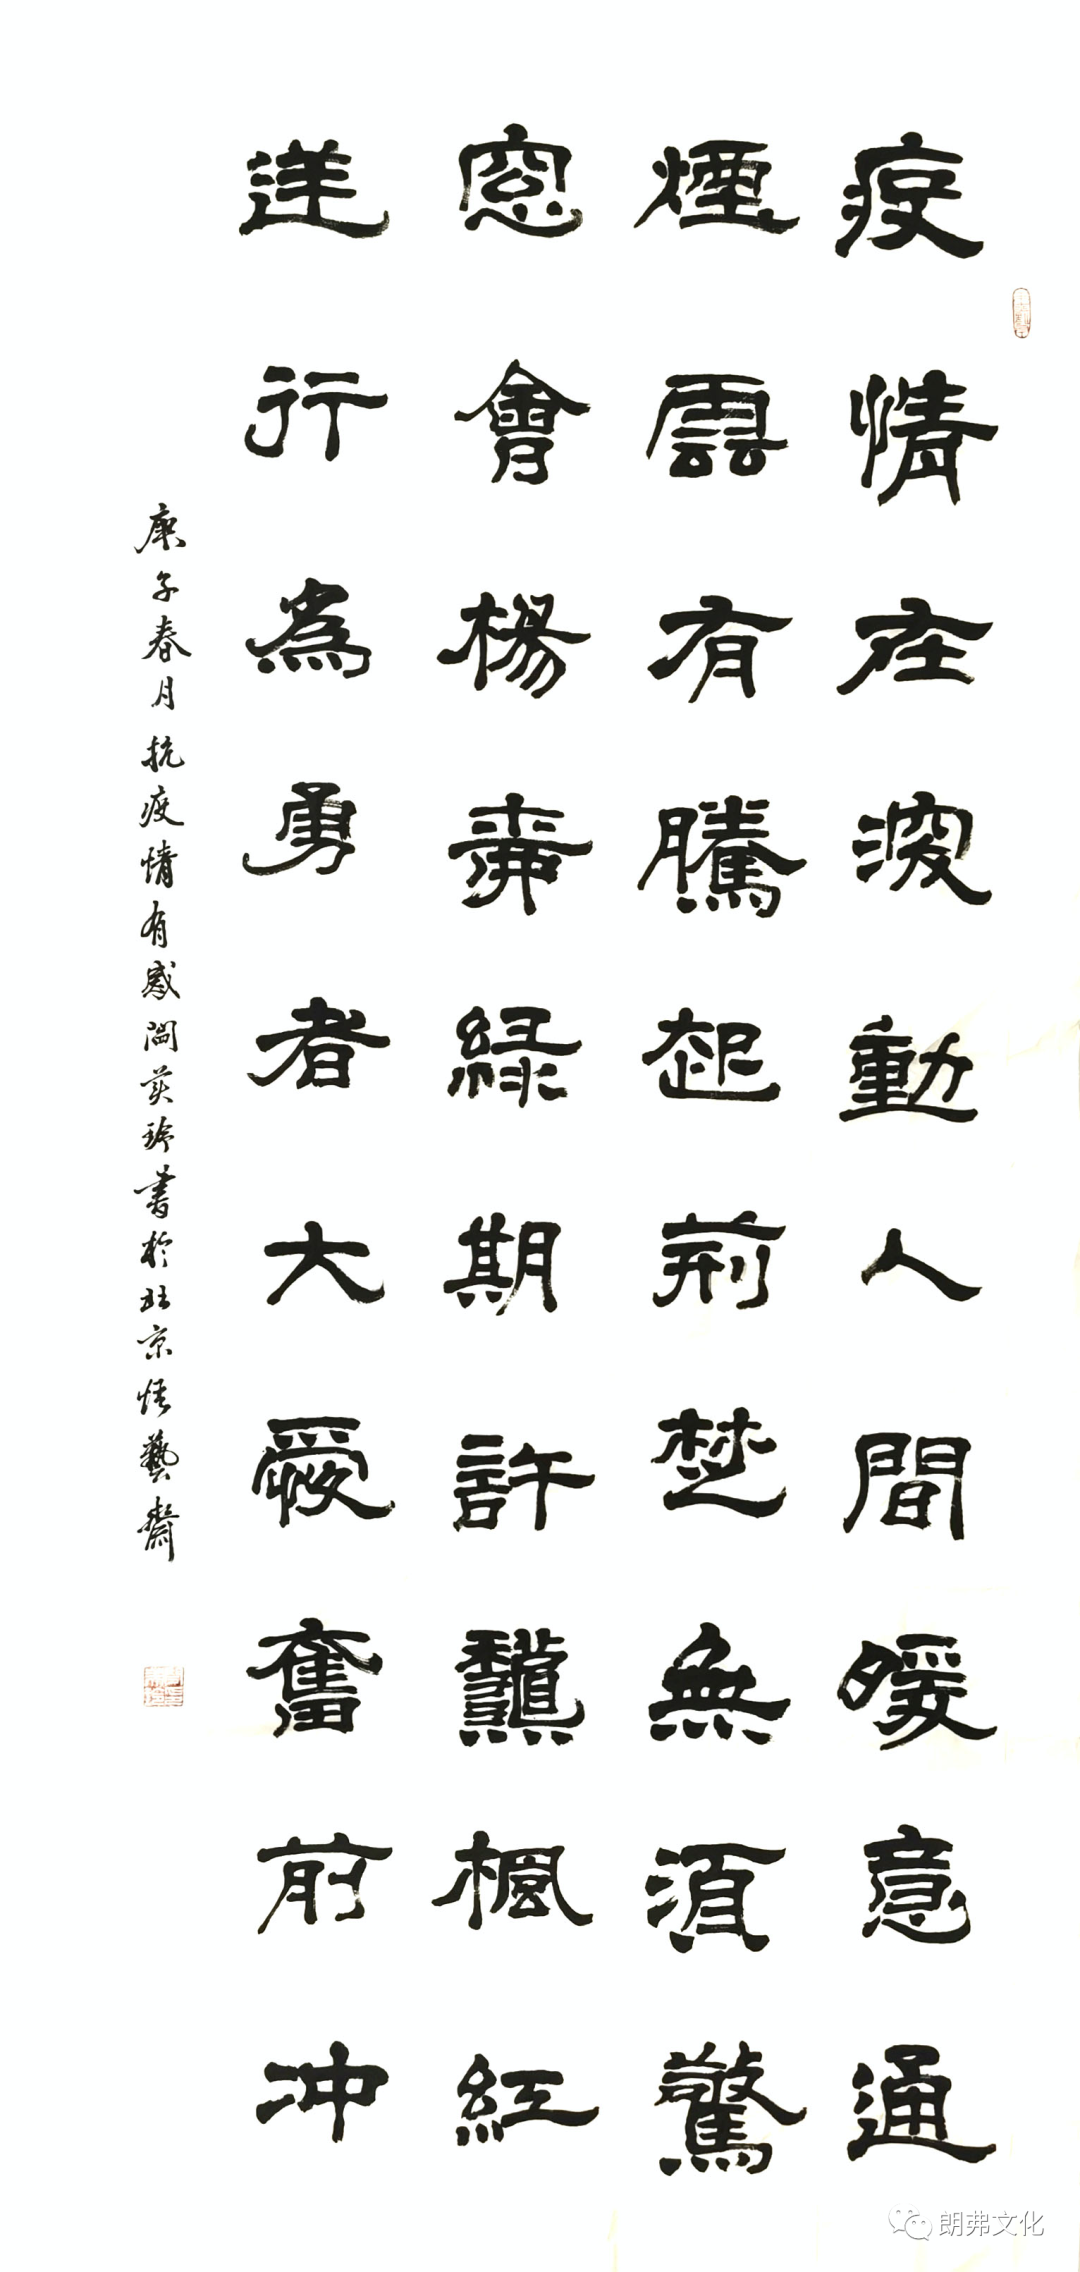 疫情在波動人間暖意通
煙雲有騰起荊楚無須驚
窓會楊綠期許楓紅
逆行為勇者大愛奮前沖
庚子春月抗疫情有感閆英玲書於北京悟藝齋
朗弗文化